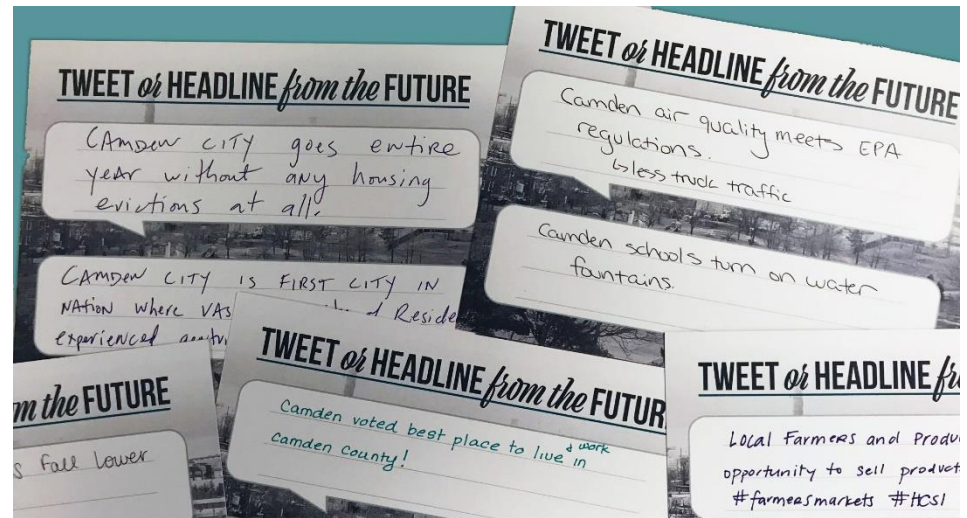 TWEET or HEADLINE from the FUTURE
CAMDEN CITY goes entire
year without any housing
evictions at all.
CAMDEN CITY IS FIRST CITY IN
NATION where VAS
d Reside
experienced
TWEET or HEADLINE from the FUTURE
Camden air quality meets EPA
regulations.
↳less truck traffic
Camden schools turn on water
fountains.
m the FUTURE
s fall lower
TWEET or HEADLINE from the FUTUR
Camden voted best place to live & work in
Camden County!
TWEET or HEADLINE fr
Local Farmers and Produ
opportunity to sell product
#farmersmarkets #HCSI